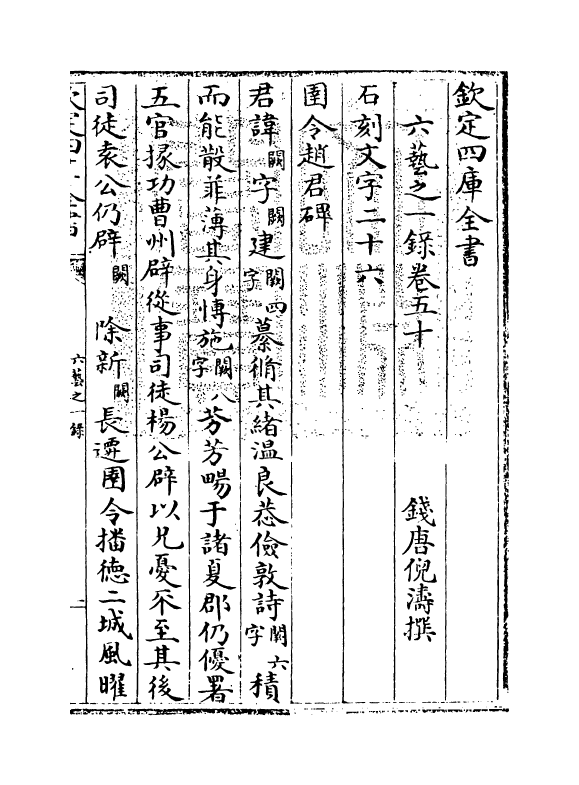 欽定四庫全書
六藝之一錄卷五十
錢唐倪濤撰
石刻文字二十六
圉令趙君碑
君諱闕字闕建闕四字慕脩其緒温良恭儉敦詩闕六字積
而能散菲薄其身愽施闕八字芬芳暢于諸夏郡仍優署
五官掾功曹州辟從事司徒楊公辟以兄憂不至其後
司徒袁公仍辟闕除新闕長遷圉令播徳二城風曜
六藝之一錄